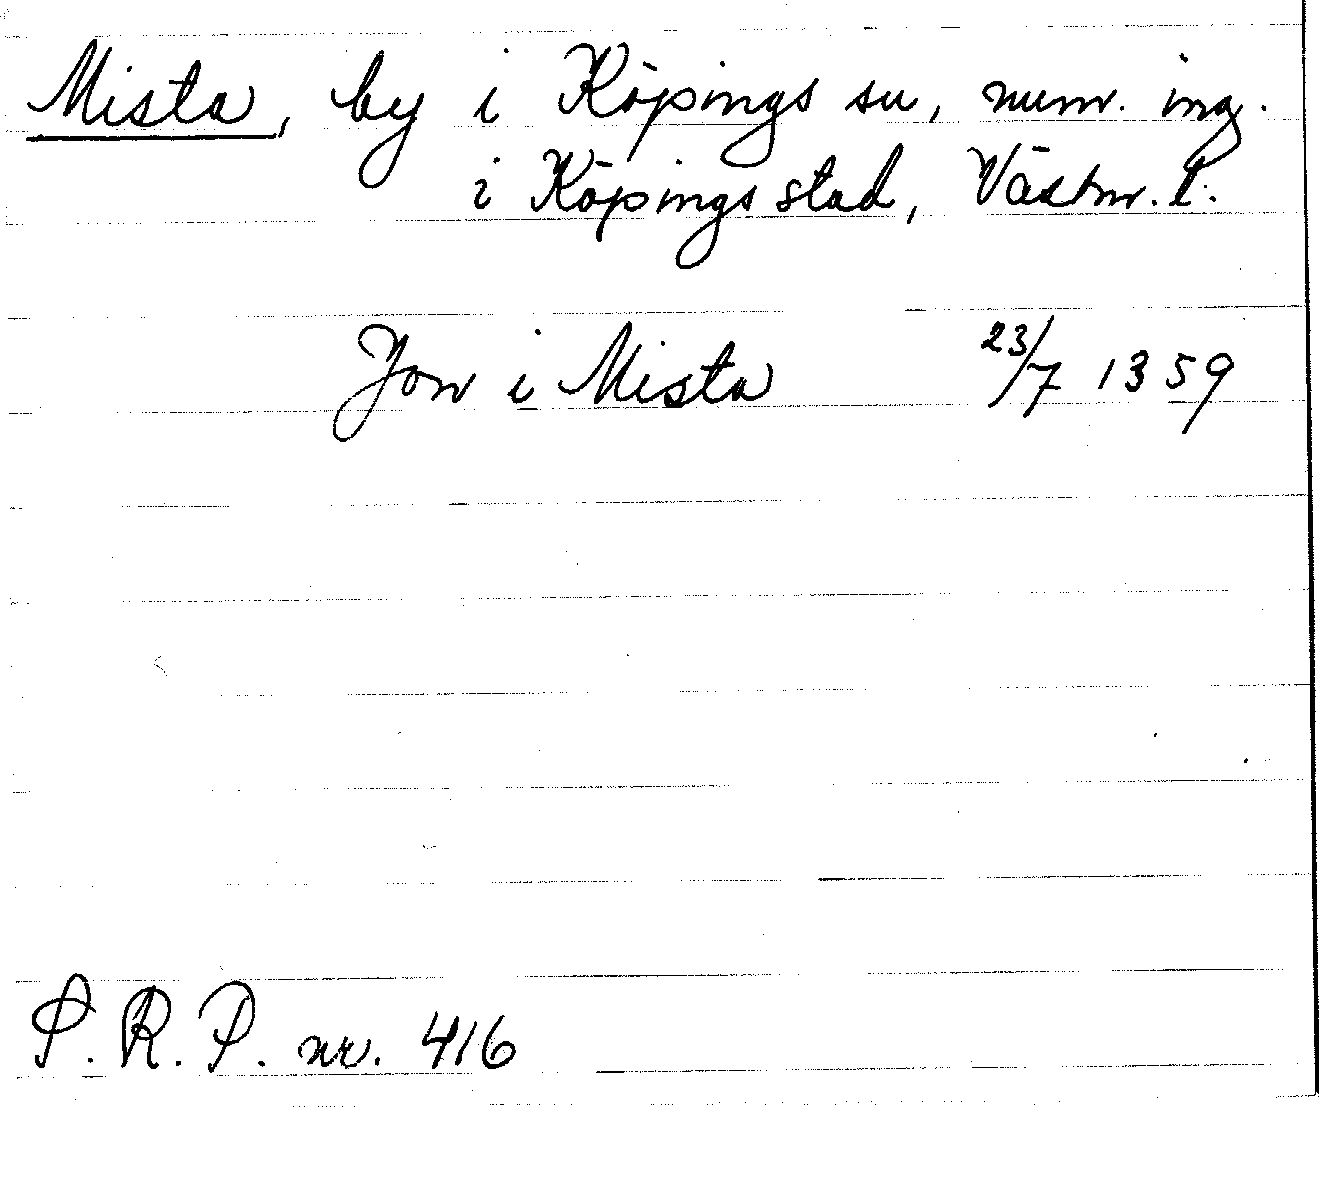 Mista, by i Köpings sn, numr. ing.
i Köpings stad, Västm. l.
Jon i Mista 23/7 1359
P. R. P. nr. 416